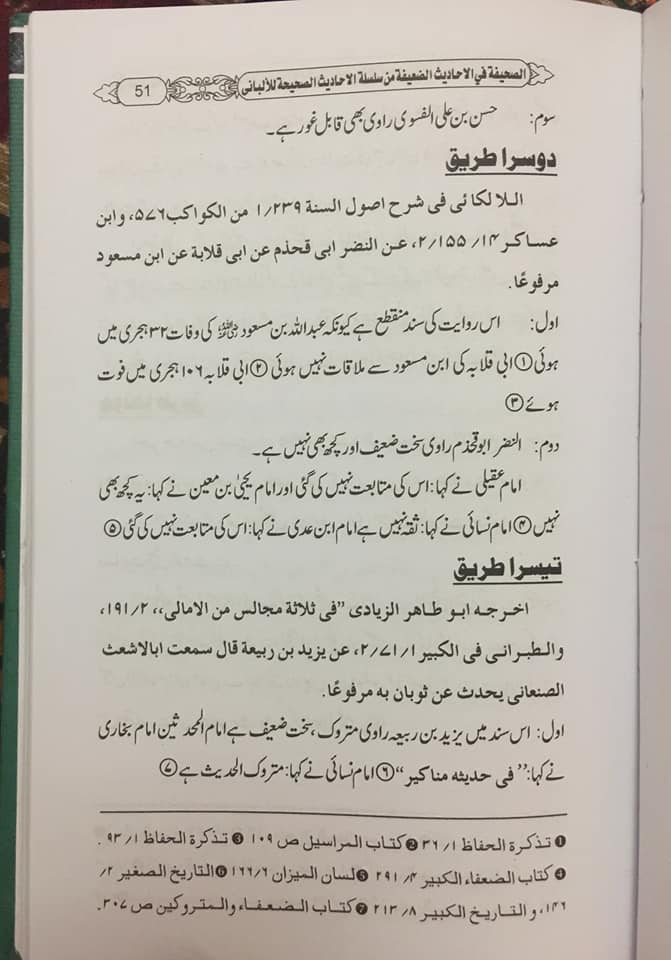 الصحيفة في الاحاديث الضعيفة من سلسلة الاحاديث الصحيحة للألبانى
51
سوم: حسن بن علی الفسوی راوی بھی قابل غور ہے۔
دوسرا طریق
اللا لکائی فی شرح اصول السنة ۱/۲۳۹ من الکواکب ۵۷۶، وابن
عساکر ۱۴/ ۱۵۵/ ۲، عن النضر ابی قحذم عن ابی قلابة عن ابن مسعود
مرفوعًا.
اول: اس روایت کی سند منقطع ہے کیونکہ عبداللہ بن مسعود رضی اللہ عنہ کی وفات ۳۲ ہجری میں
ہوئی ① ابی قلابہ کی ابن مسعود سے ملاقات نہیں ہوئی ② ابی قلابہ ۱۰۶ ہجری میں فوت
ہوئے ③
دوم: النضر ابو قحذم راوی سخت ضعیف اور کچھ بھی نہیں ہے۔
امام عقیلی نے کہا: اس کی متابعت نہیں کی گئی اور امام یحییٰ بن معین نے کہا: یہ کچھ بھی
نہیں ④ امام نسائی نے کہا: ثقہ نہیں ہے امام ابن عدی نے کہا: اس کی متابعت نہیں کی گئی ⑤
تیسرا طریق
اخرجه ابو طاهر الزیادی ”فی ثلاثة مجالس من الامالی،، ۱۹۱/۲،
والطبرانی فی الکبیر ۷۱/۱ /۲، عن یزید بن ربیعة قال سمعت ابالاشعث
الصنعانی یحدث عن ثوبان به مرفوعًا.
اول: اس سند میں یزید بن ربیعہ راوی متروک، سخت ضعیف ہے امام المحدثین امام بخاری
نے کہا: ”فی حدیثه مناکیر“ ⑥ امام نسائی نے کہا: متروک الحدیث ہے ⑦
❶ تذکرة الحفاظ ۱/ ۳۶ ❷ کتاب المراسیل ص ۱۰۹ ❸ تذکرة الحفاظ ۱/ ۹۳ .
❹ کتاب الضعفاء الکبیر ۴/ ۲۹۱ ❺ لسان المیزان ۶/ ۱۶۶ ❻ التاریخ الصغیر ۲/
۱۴۶، و التاریخ الکبیر ۸/ ۲۱۳ ❼ کتاب الضعفاء والمتروکین ص ۳۰۷.